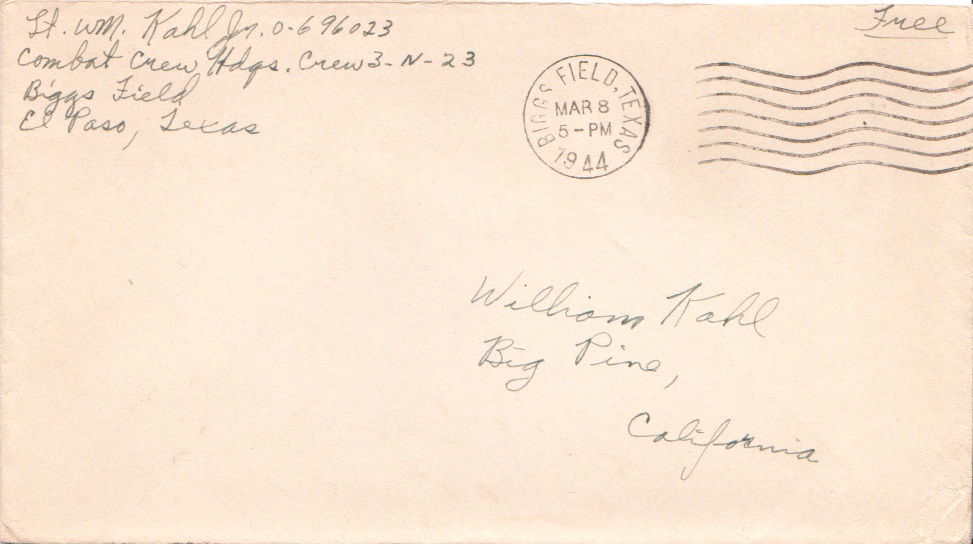 Lt. Wm. Kahl Jr. O-696023
Combat Crew Hdqs. Crew 3-N-23
Biggs Field
El Paso, Texas
Free
BIGGS FIELD, TEXAS
MAR 8
5-PM
1944
William Kahl
Big Pine,
California